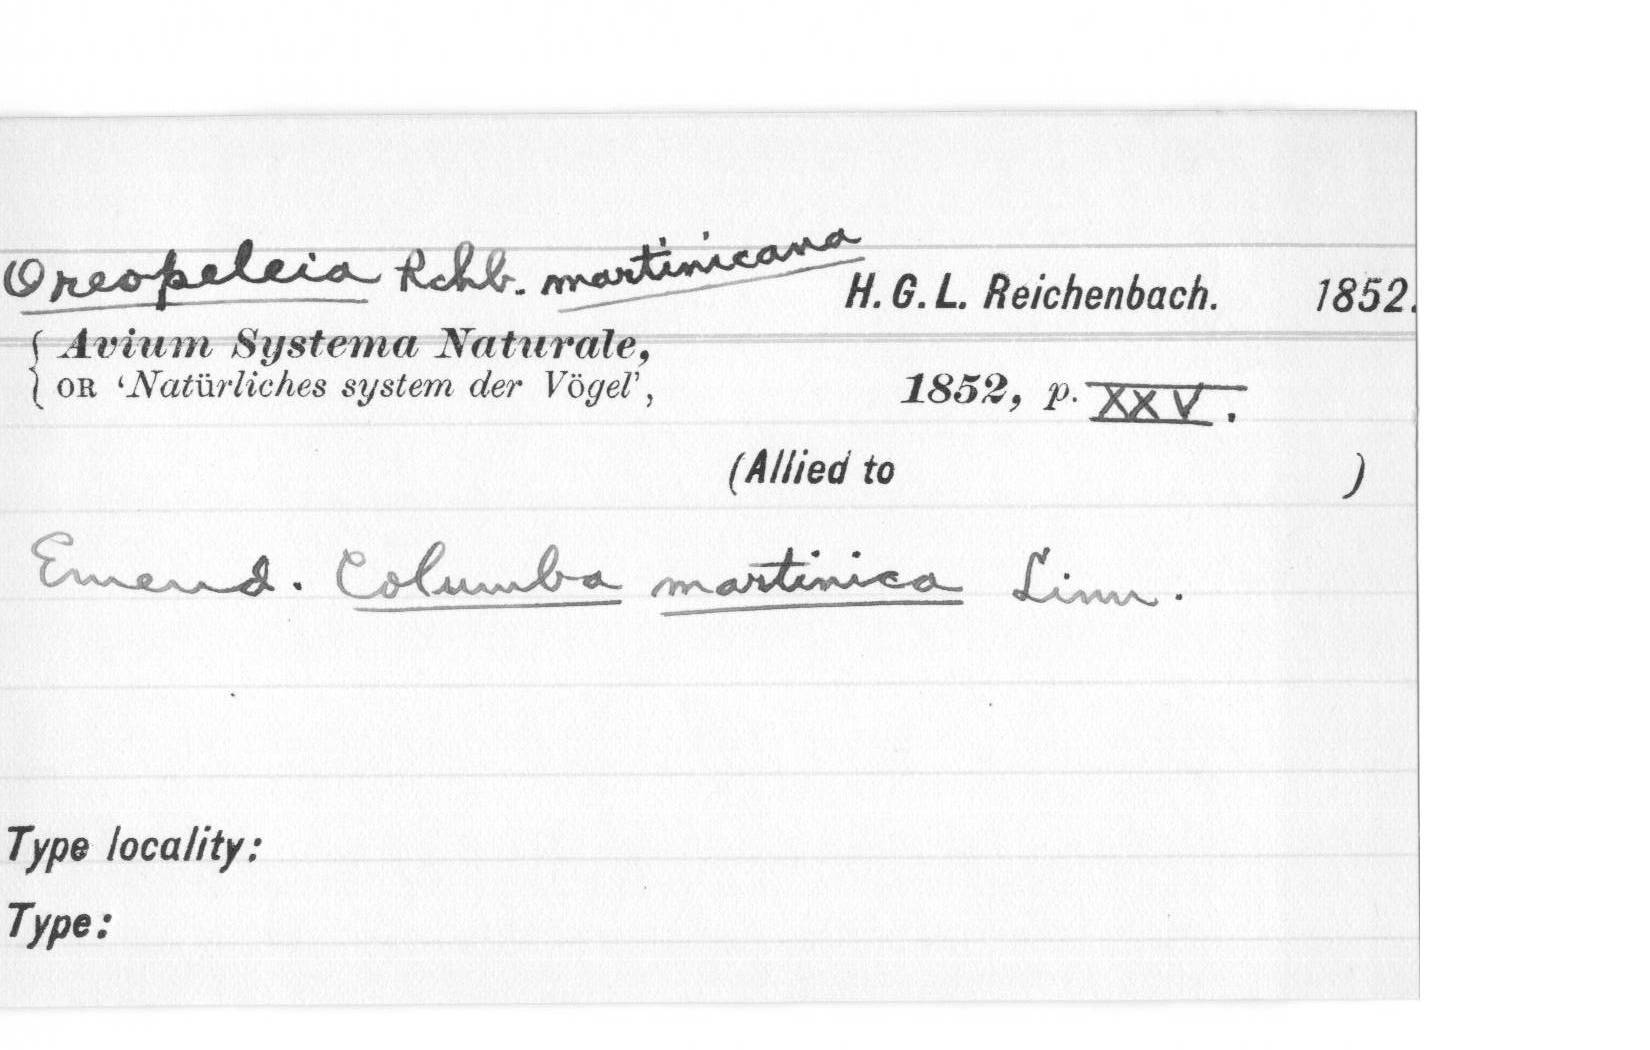 Oreopeleia Rchb. martinicana H. G. L. Reichenbach. 1852.
{ Avium Systema Naturale,
{ OR ‘Natürliches system der Vögel’, 1852, p. XXV.
(Allied to )
Emend. Columba martinica Linn.
Type locality:
Type: